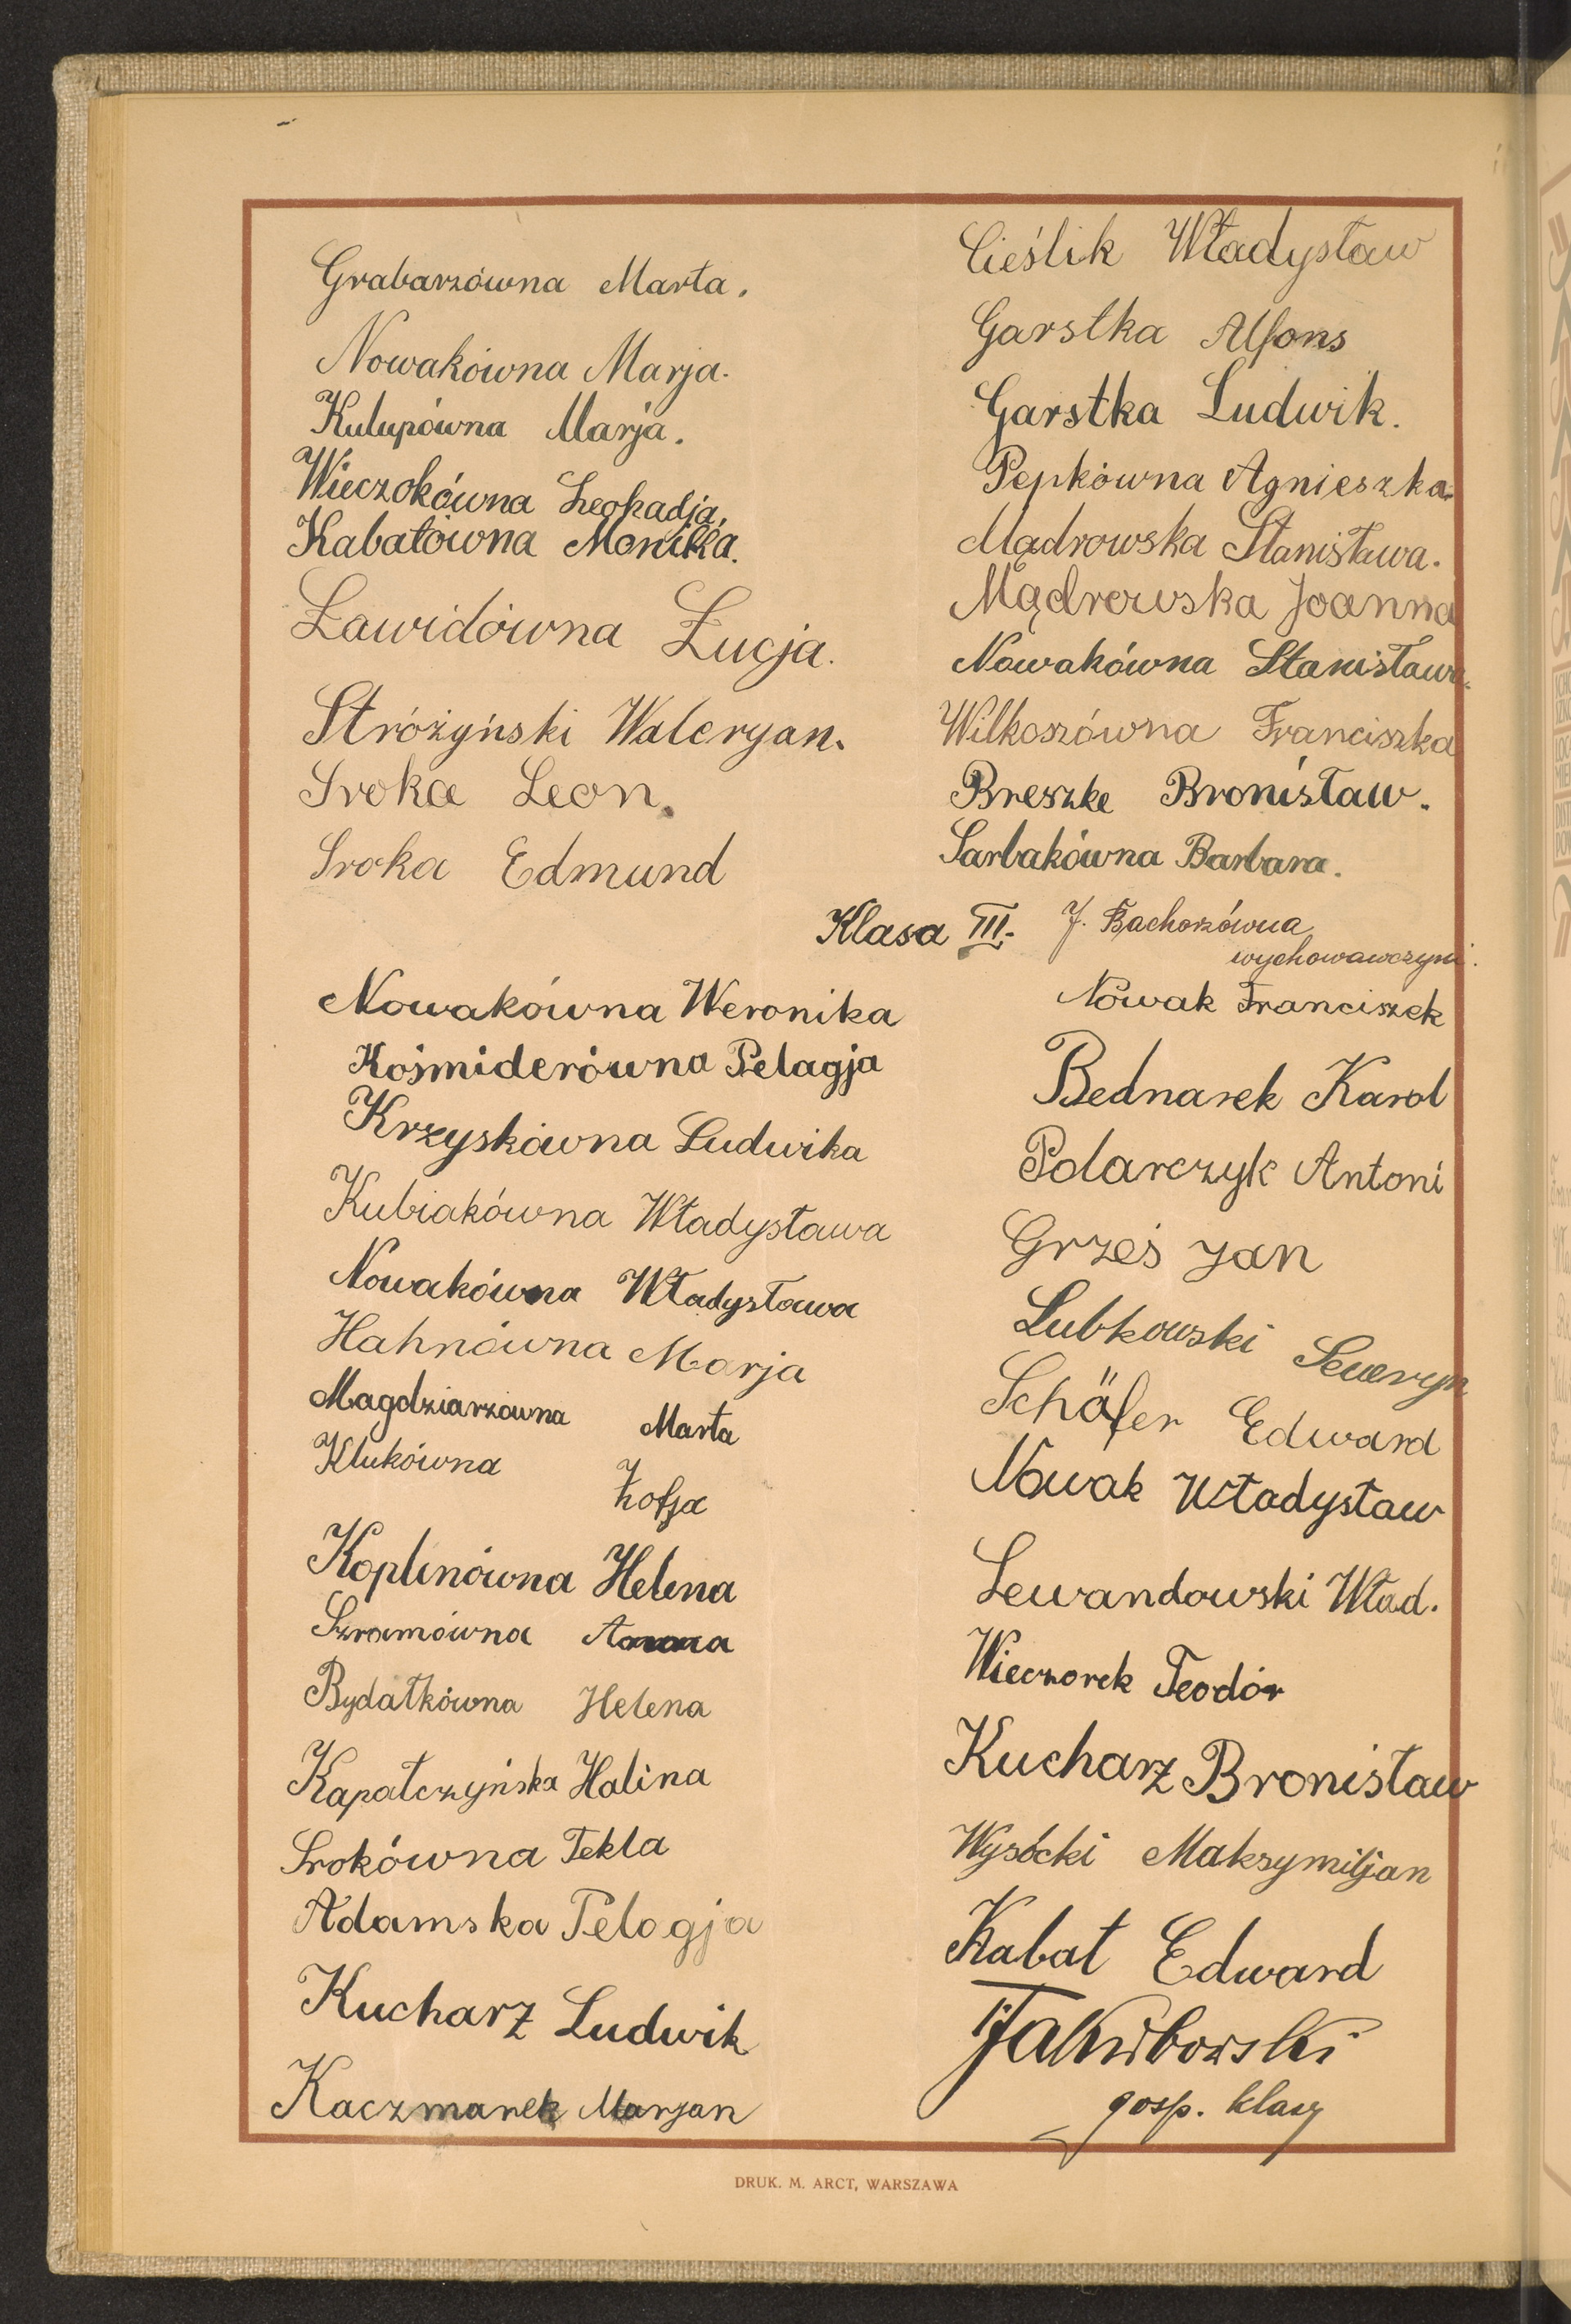 Grabarzówna Marta.
Nowakówna Marja.
Kulupówna Marja.
Wieczokówna Leokadja.
Kabatówna Monika.
Ławidówna Łucja.
Stróżyński Waleryan.
Sroka Leon.
Sroka Edmund
Cieślik Władysław
Garstka Alfons
Garstka Ludwik.
Pepkówna Agnieszka.
Mądrowska Stanisława.
Mądrowska Joanna
Nowakówna Stanisława.
Wilkoszówna Franciszka
Breszke Bronisław.
Sarbakówna Barbara.
Klasa III. J. Bachorzówna
wychowawczyni.
Nowakówna Weronika
Kośmiderówna Pelagja
Krzyskówna Ludwika
Kubiakówna Władysława
Nowakówna Władysława
Hahnówna Marja
Magdziarzówna Marta
Klukówna Zofja
Koplinówna Helena
Szramówna Anna
Bydałkówna Helena
Kapałczyńska Halina
Srokówna Tekla
Adamska Pelagja
Kucharz Ludwik
Kaczmarek Marjan
Nowak Franciszek
Bednarek Karol
Polarczyk Antoni
Grześ Jan
Lubkowski Seweryn
Schäfer Edward
Nowak Władysław
Lewandowski Wład.
Wieczorek Teodór
Kucharz Bronisław
Wysócki Maksymiljan
Kabat Edward
Jakubowski
gosp. klasy
DRUK. M. ARCT, WARSZAWA